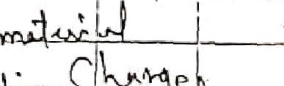 material
Charges